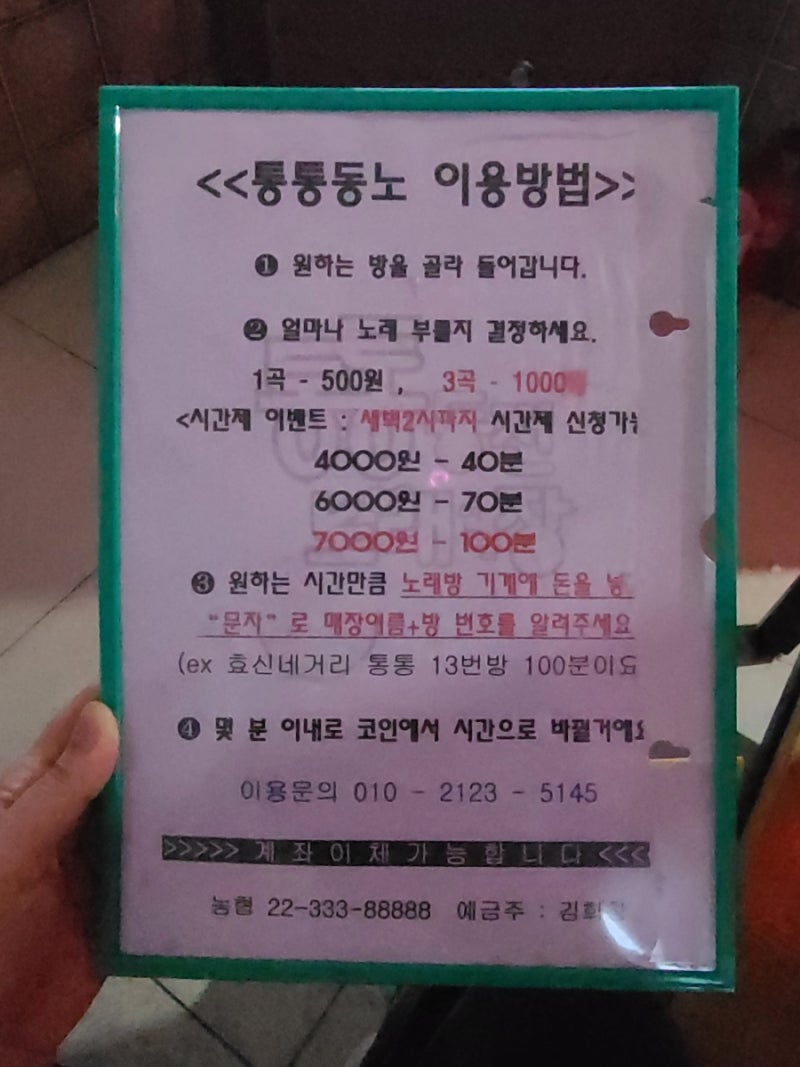 <<통통동노 이용방법>>
❶ 원하는 방을 골라 들어갑니다.
❷ 얼마나 노래 부를지 결정하세요.
1곡 - 500원 , 3곡 - 1000
<시간제 이벤트 : 새벽2시까지 시간제 신청가능
4000원 - 40분
6000원 - 70분
7000원 - 100분
❸ 원하는 시간만큼 노래방 기계에 돈을 넣
"문자" 로 매장이름+방 번호를 알려주세요
(ex 효신네거리 통통 13번방 100분이요
❹ 몇 분 이내로 코인에서 시간으로 바뀔거예요
이용문의 010 - 2123 - 5145
>>>>> 계 좌 이 체 가 능 합 니 다 <<<
농협 22-333-88888 예금주 :